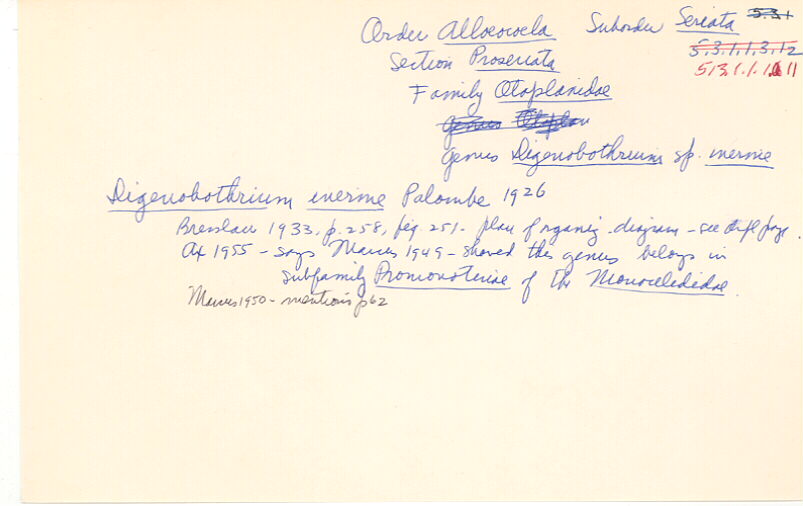 Order Alloeocoela Suborder Seriata 5.3.1
Section Proseriata 5.3.1.1.3.12
Family Otoplanidae 5.3.1.1.1.11
Genus Otoplan
Genus Digenobothrium sp. inerme
Digenobothrium inerme Palombe 1926
Bresslau 1933, p. 258, fig 251 - plan of organiz. diagram - see page
Ax 1955 - says Marcus 1949 - showed this genus belongs in
subfamily Promonotinae of the Monocelididae.
Marcus 1950 - mentions p62